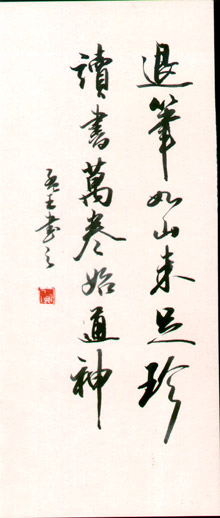 退筆如山未足珍
讀書萬卷始通神